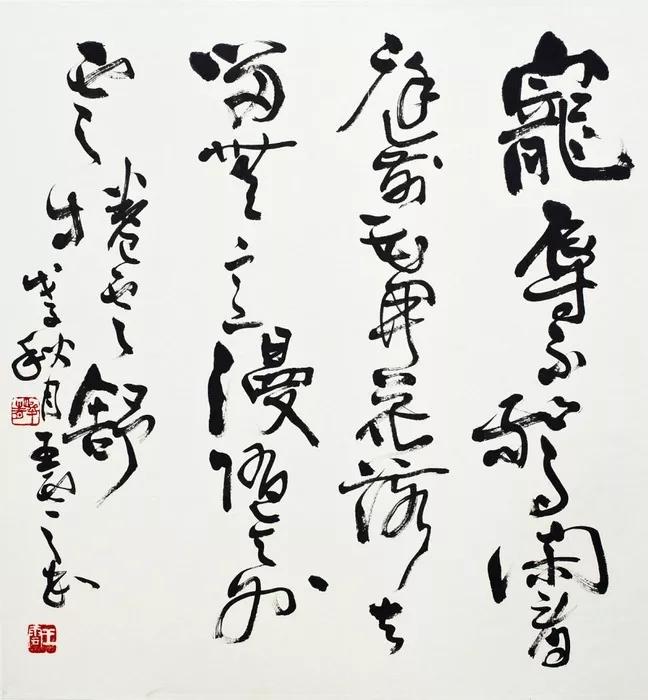 寵辱不驚閑看
庭前花開花落去
留無意漫隨天外
雲卷雲舒
時戊子秋月王之书